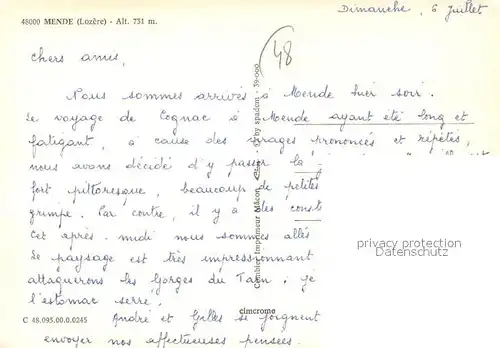 48000 MENDE (Lozère) - Alt. 731 m.
Dimanche, 6 Juillet
48
Chers amis,
Nous sommes arrivés à Mende hier soir.
Le voyage de Cognac à Mende ayant été long et
fatigant, à cause des virages prononcés et répétés,
nous avons décidé d'y passer la
fort pittoresque, beaucoup de petites
grimpe. Par contre, il y a des
Cet après-midi nous sommes allés
Le paysage est très impressionnant
attaquerons les Gorges du Tarn; j'ai
l'estomac serré.
André et Gilles se joignent
envoyer nos affectueuses pensées.
Combier Imprimeur Mâcon
by spadem - 39-000
privacy protection
Datenschutz
cimcrome
C 48.095.00.0.0245